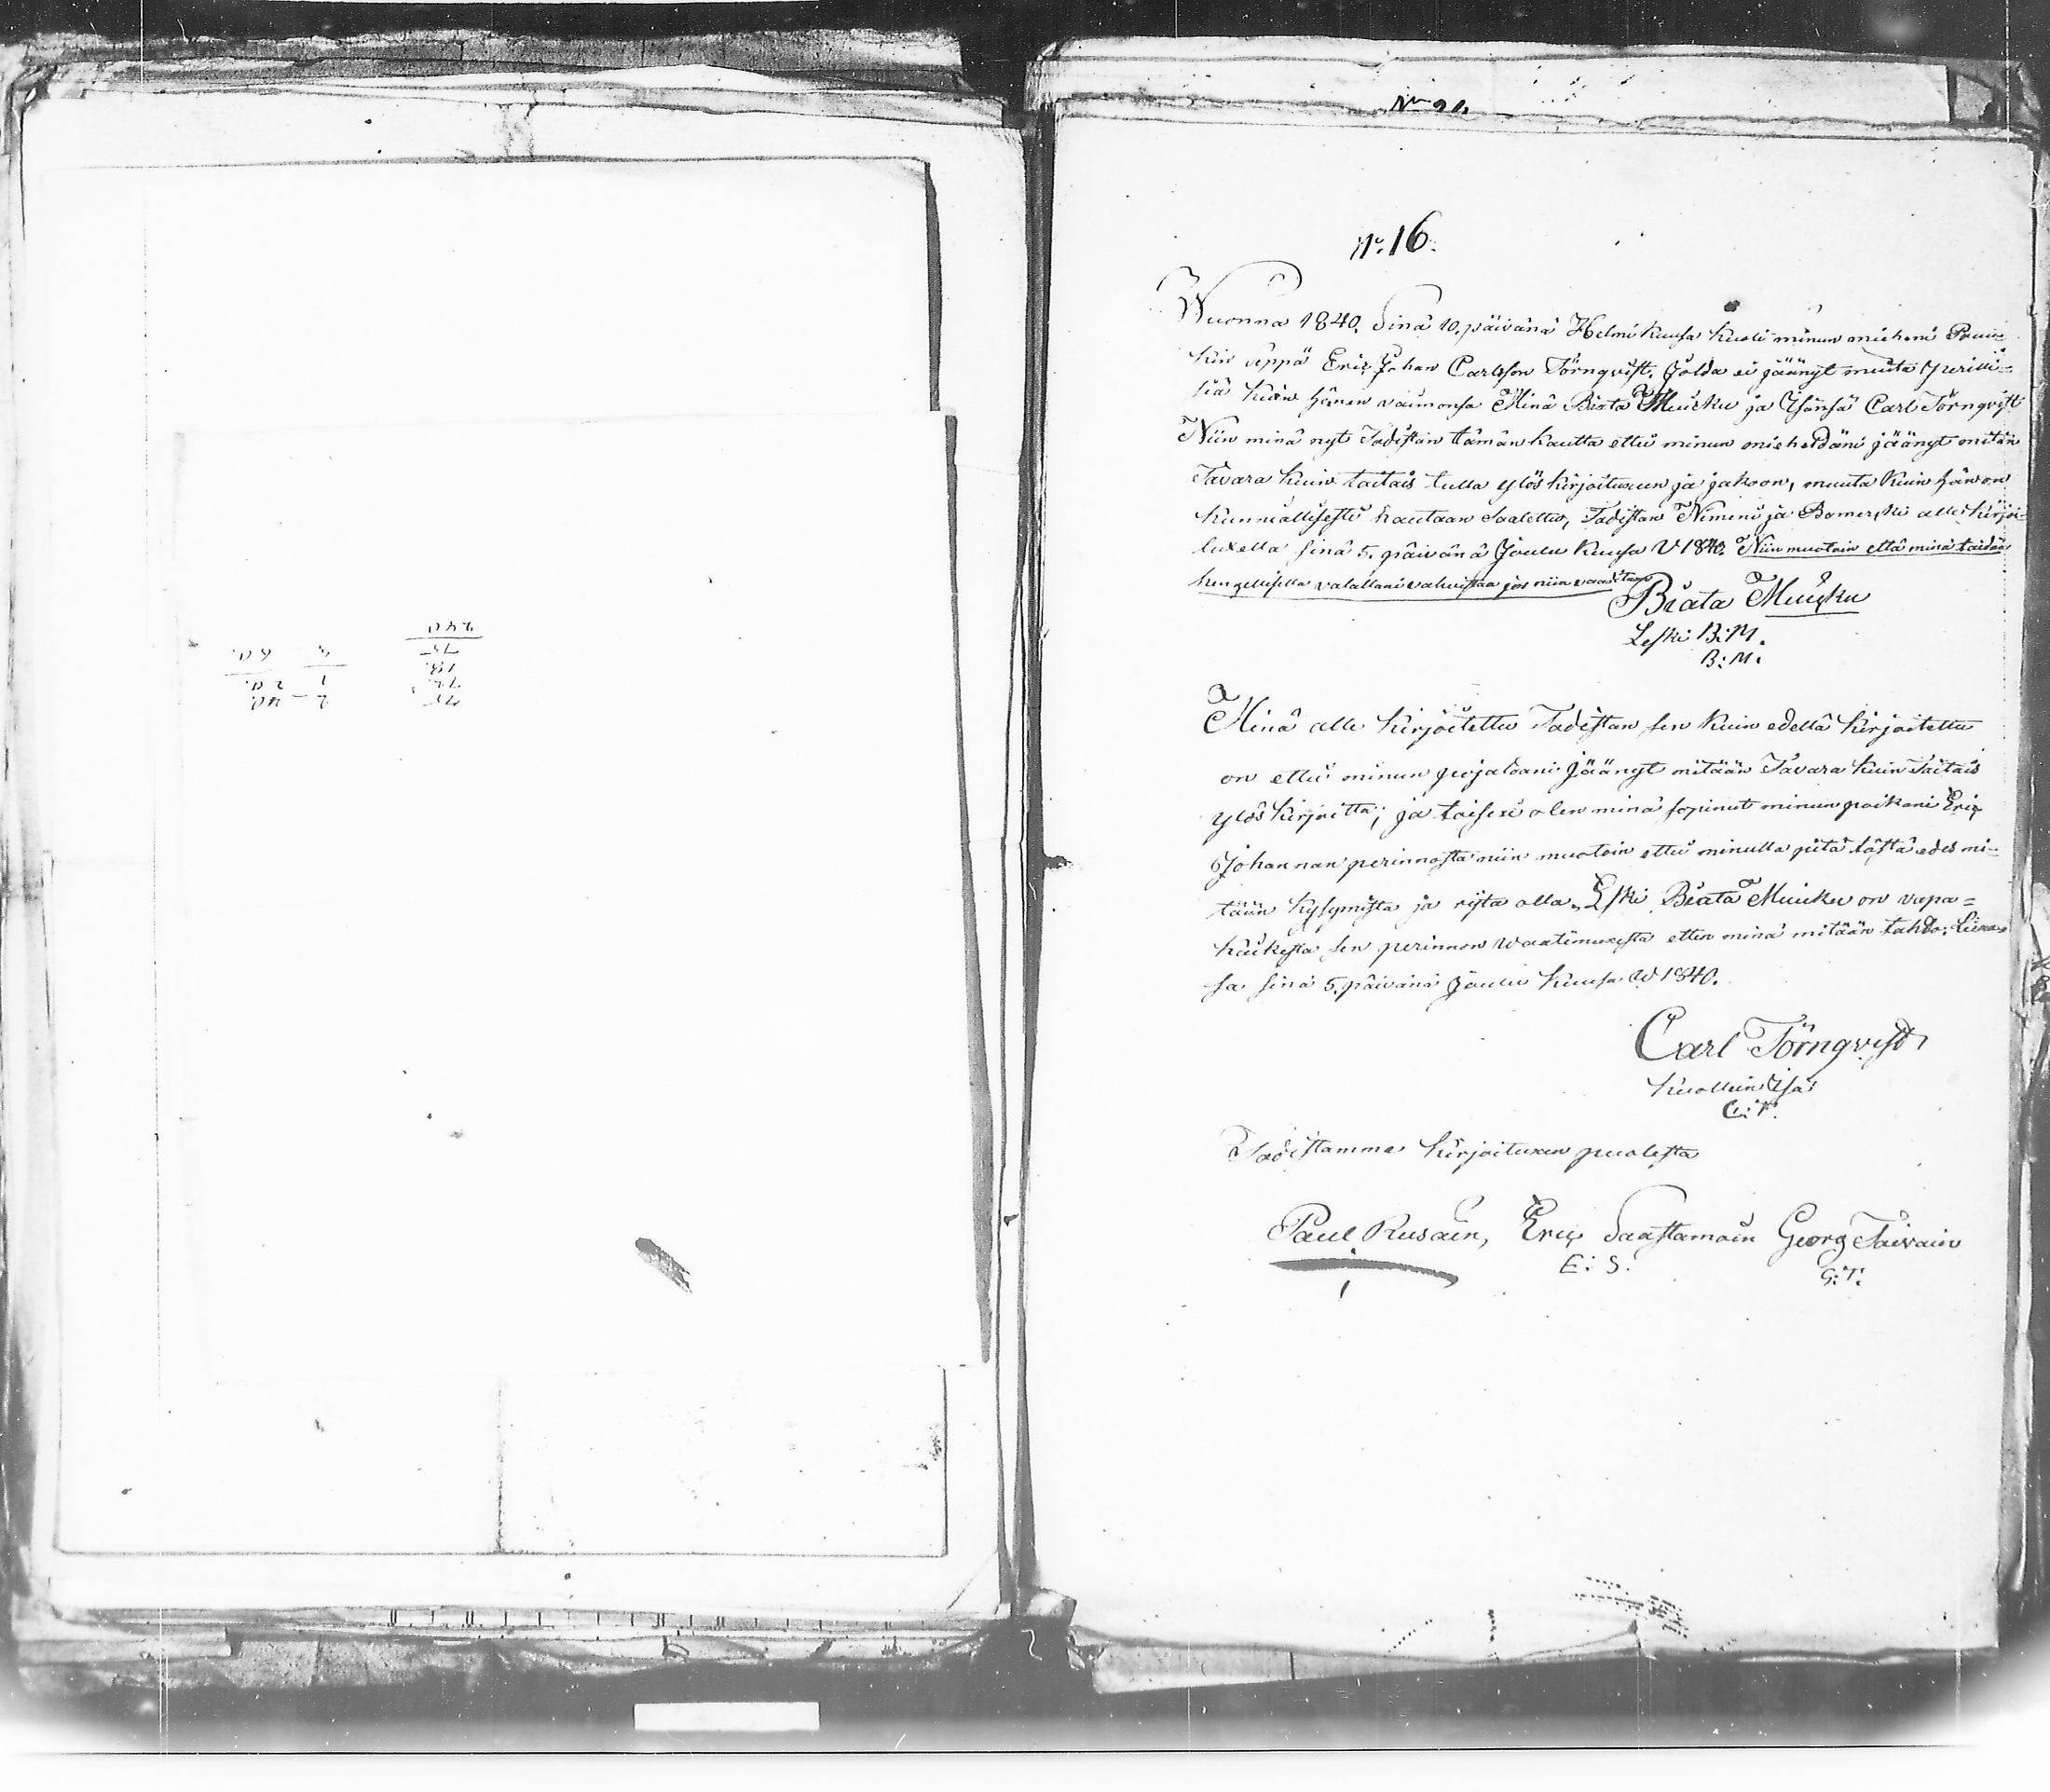 No 16.
Wuonna 1840. Sinä 10. päivänä Helmi kuusa kuoli minun mieheni Pruu=
kin seppä Eric Johan Carlsson Törnqvist, Jolda ei jäänyt muita perilli=
siä kuin hänen vaimonsa Minä Biata Muicku ja Isänsä Carl Törnqvist
Niin minä nyt Todistan tämän kautta ettei minun mieheldäni jäänyt mitän
Tavara kuin taitais tulla ylös kirjoituxeen ja jakoon, muuta kuin hän on
kunniallisesti hautaan Saatettu, Todistan Nimeni ja Bomerkki alle kirjoi=
tuxella sinä 5. päivänä Joulu kuusa V 1840. Niin muotoin että minä taidan
hengellisellä valallani vahvistaa jos niin vaaditaan
Biata Muicku
Leski B: M.
B: M:
Minä alle kirjoitettu Todistan sen kuin edellä kirjoitettu
on ettei minun pojaldani Jäänyt mitään Tavara kuin Taitais
ylös kirjoitta; ja toisexi olen minä sopinut minun poikani Eric
Johannan perinnöstä niin muotoin ettei minulla pitä tästä edes mi=
tään kysymystä ja rijta olla, Leski Biata Muicku on vapa=
kaikesta sen perinnön waatimuxesta etten minä mitään tahdo.
sa sinä 5. päivänä Joulu kuusa W 1840.
Carl Törnqvist
kuolleen Isä
C: T.
Todistamma kirjoituxen puolesta
Paul Rusain, Eric Saastamoin Georg Taivain
E: S. G: T: